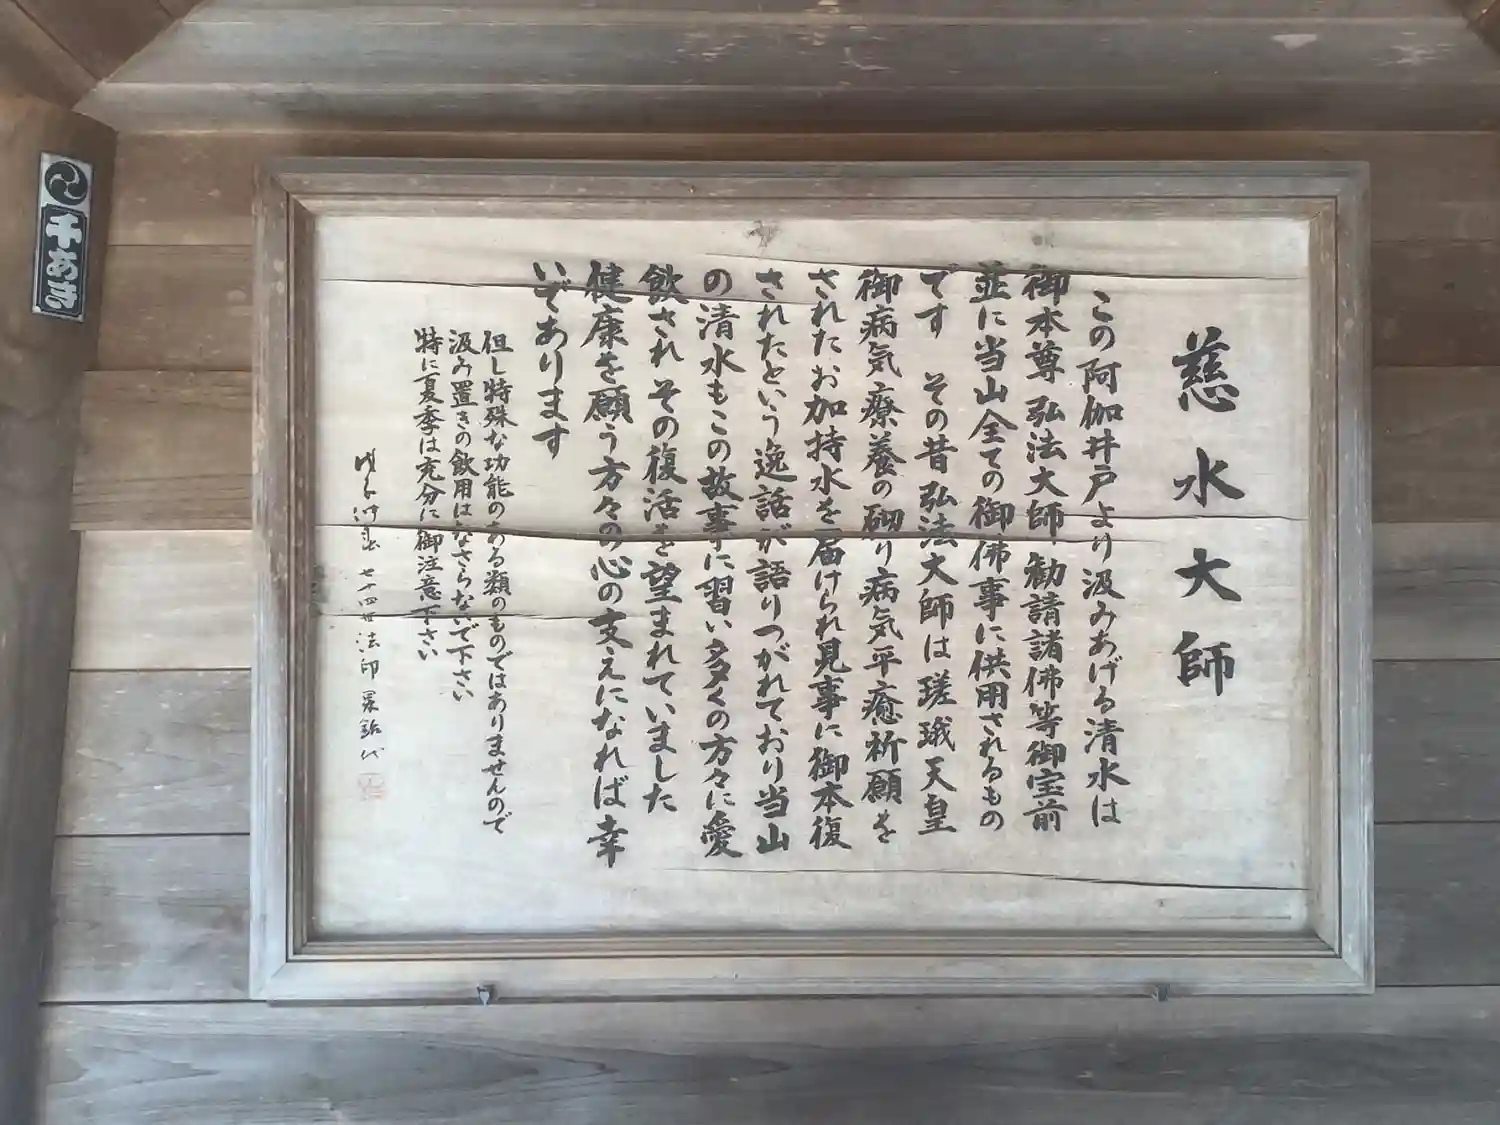 慈水大師
この阿伽井戸より汲みあげる清水は
御本尊弘法大師、勧請諸佛等御宝前
並に当山全ての御佛事に供用されるもの
です その昔弘法大師は瑳珴天皇
御病気療養の砌り病気平癒祈願を
されたお加持水を届けられ見事に御本復
されたという逸話が語りつがれており当山
の清水もこの故事に習い多くの方々に愛
飲され その復活を望まれていました
健康を願う方々の心の支えになれば幸
いであります
但し特殊な功能のある類のものではありませんので
汲み置きの飲用はなさらないで下さい
特に夏季は充分に御注意下さい
七十四世法印
千あき